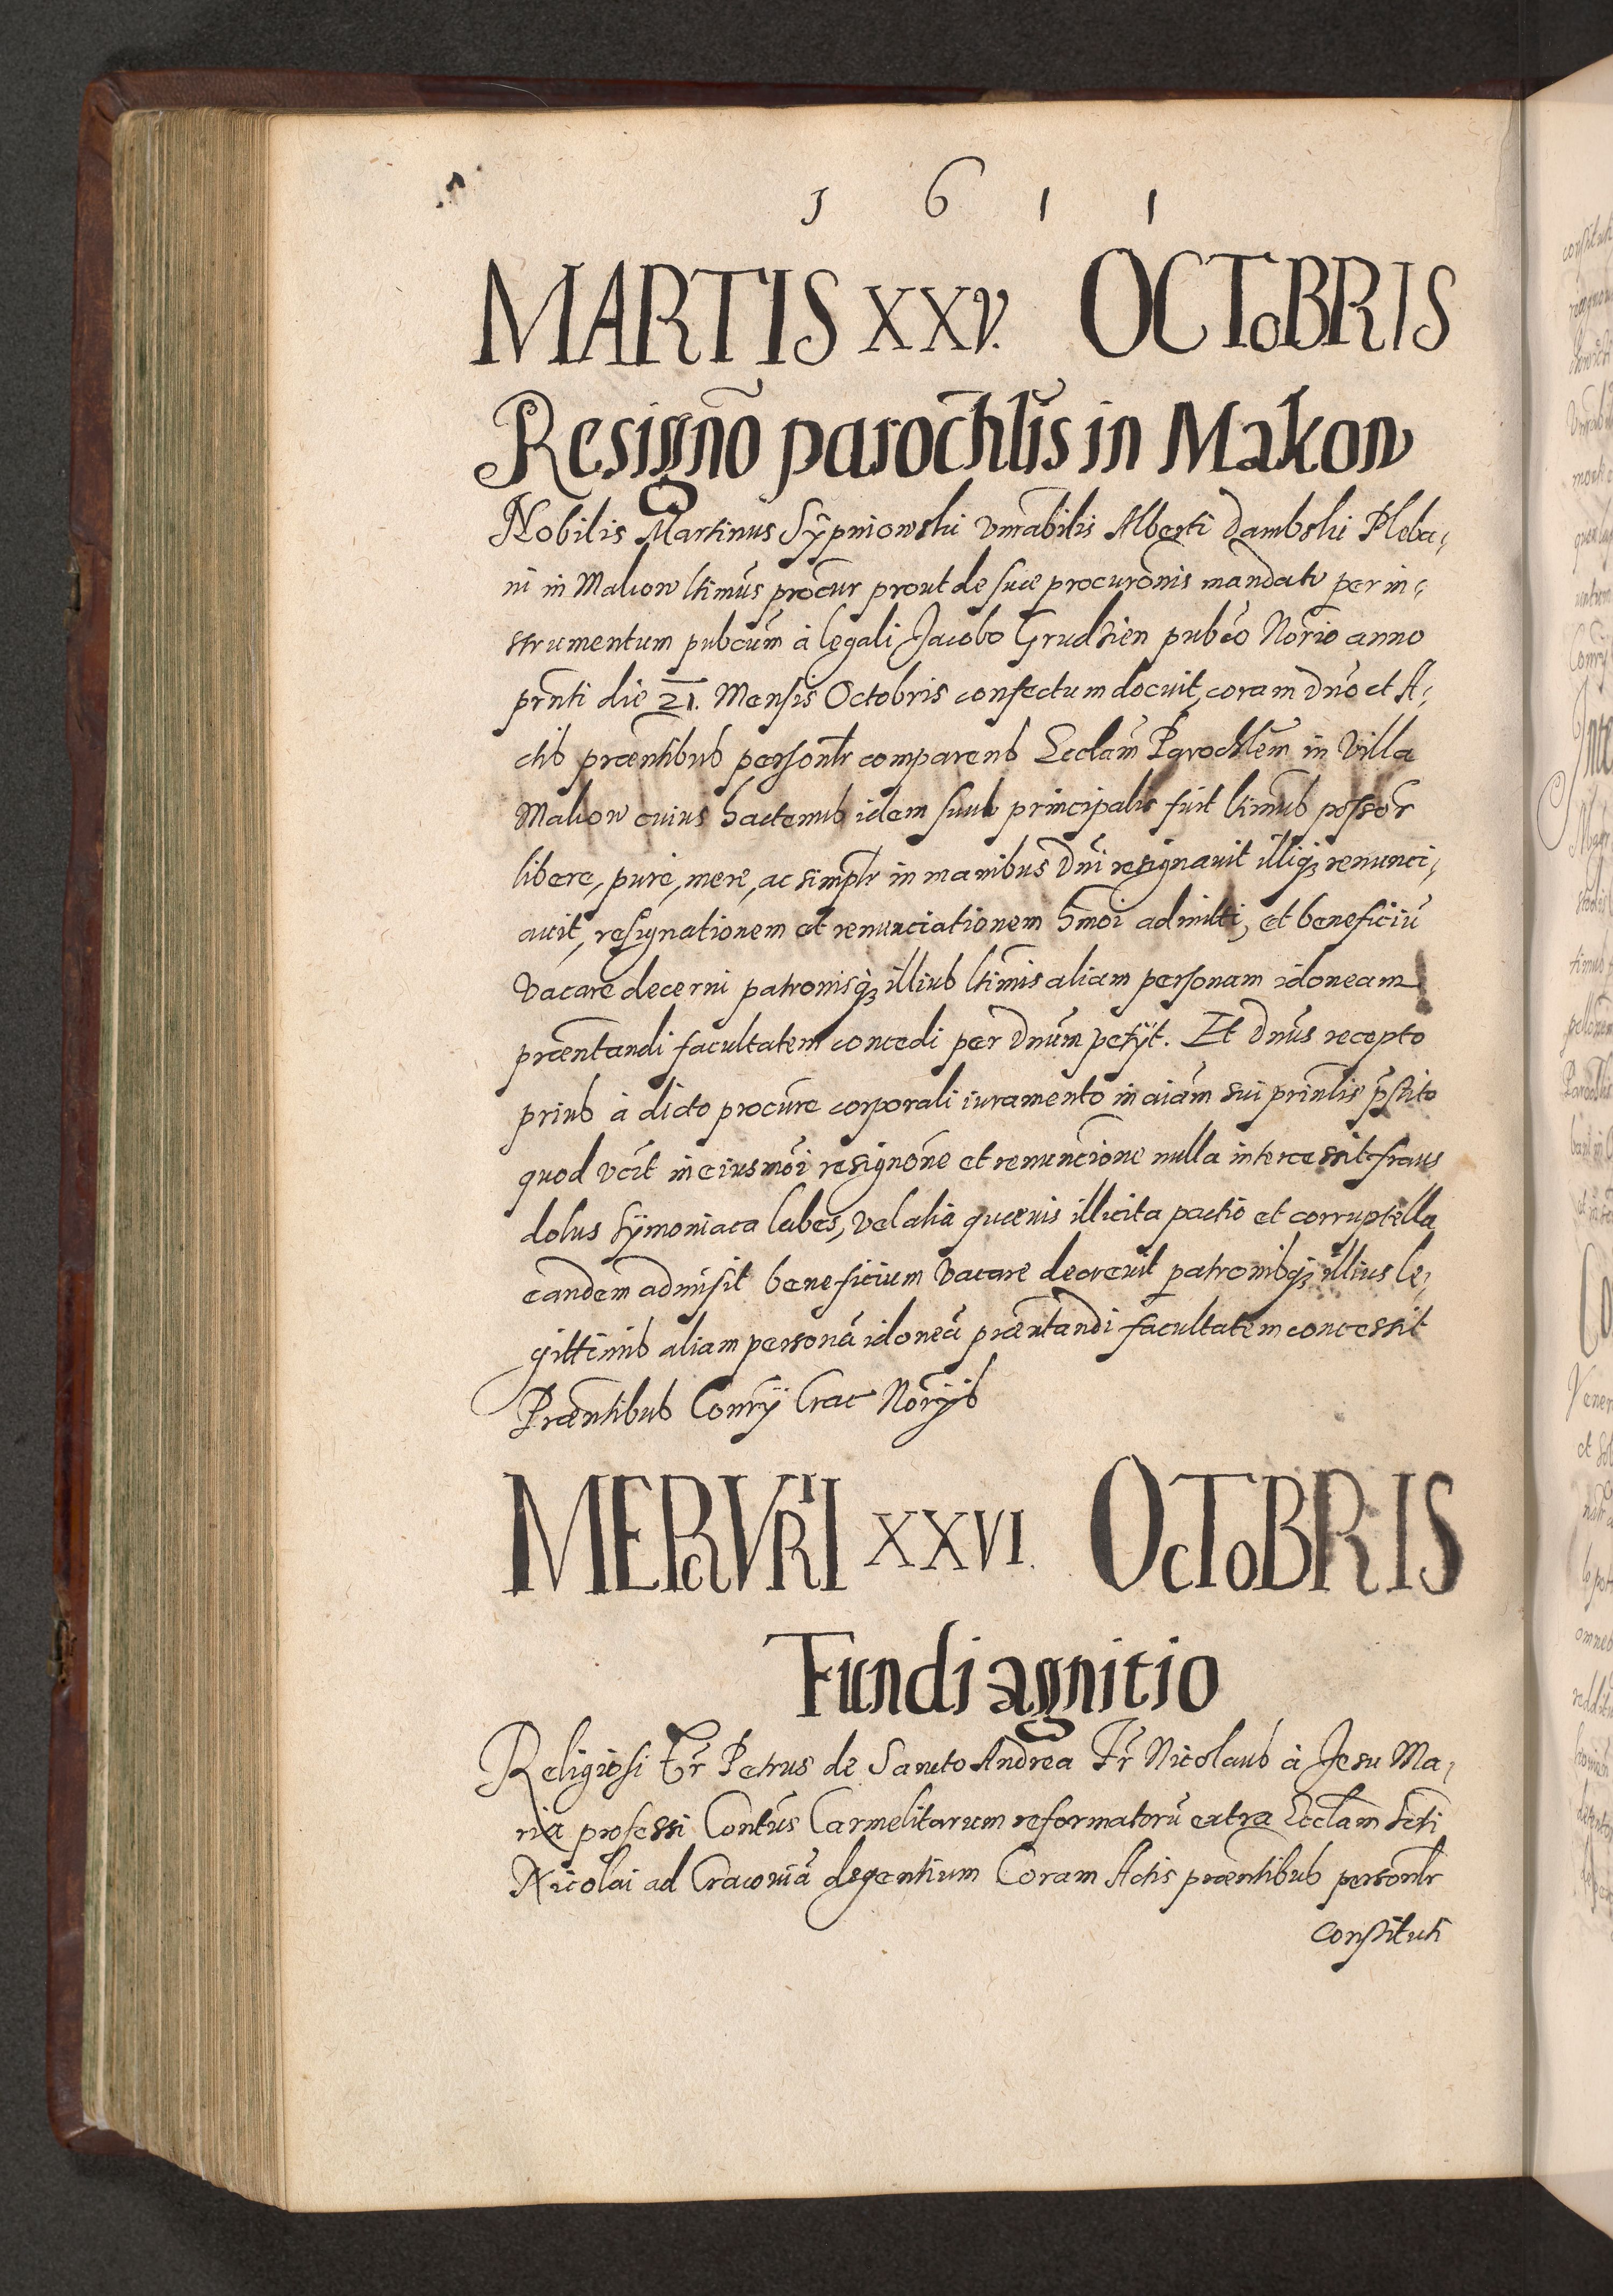 1 6 1 1
MARTIS XXV. OCTOBRIS
Resignõ parochlis in Makow
Nobilis Martinus Sÿpniowski Vnrabilis Alberti Dambski Pleba-
ni in Makow ltimus procur prout de suae procuronis mandato per in-
strumentum pubcum à legali Jacobo Grudzien pubco Norio anno
prnti die 21. Mensis Octobris confectum docuit, coram Dno et A-
ctis praentibus personlr comparens Ecclam Parochlem in Villa
Makow cuius hactenus idem suus principalis fuit ltimus possor
libere, purè, merè, ac simplr in manibus Dni resignauit illiq3 renunci-
auit, resignationem et renunciationem hmoi admitti, et beneficiũ
Vacare decerni patronisq3 illius ltimis aliam personam idoneam
praentandi facultatem concedi per Dnum petÿt. Et Dnus recepto
prius à dicto procure corporali iuramento in aiam sui prinlis pstito
quod vcit in eiusmoi resignone et renuncione nulla intercessit fraus
dolus sÿmoniaca labes, vel alia quaeuis illicita pactio et corruptella
eandem admisit beneficium Vacare decreuit patronisq3 illius le-
gittimis aliam personã idoneã praentandi facultatem concessit
Praentibus Conrÿ Crac Norÿs
MERCVRI XXVI. OCTOBRIS
Fundi agnitio
Religiosi Fr Petrus de Sancto Andrea Fr Nicolaus à Jesu Ma-
ria professi Contus Carmelitarum reformatorũ extra Ecclam Scti
Nicolai ad Cracouiã degentium Coram Actis praentibus personlr
constituti